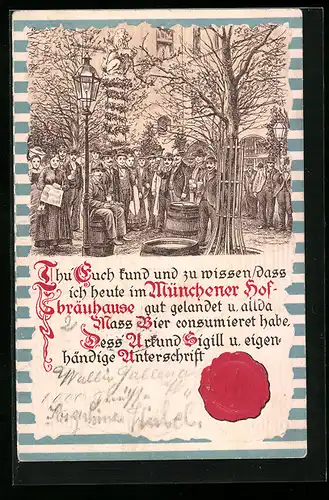 Thu Euch kund und zu wissen, dass
ich heute im Münchener Hof-
bräuhause gut gelandet u. allda
2 Mass Bier consumieret habe,
Dess Urkund Sigill u. eigen-
händige Unterschrift